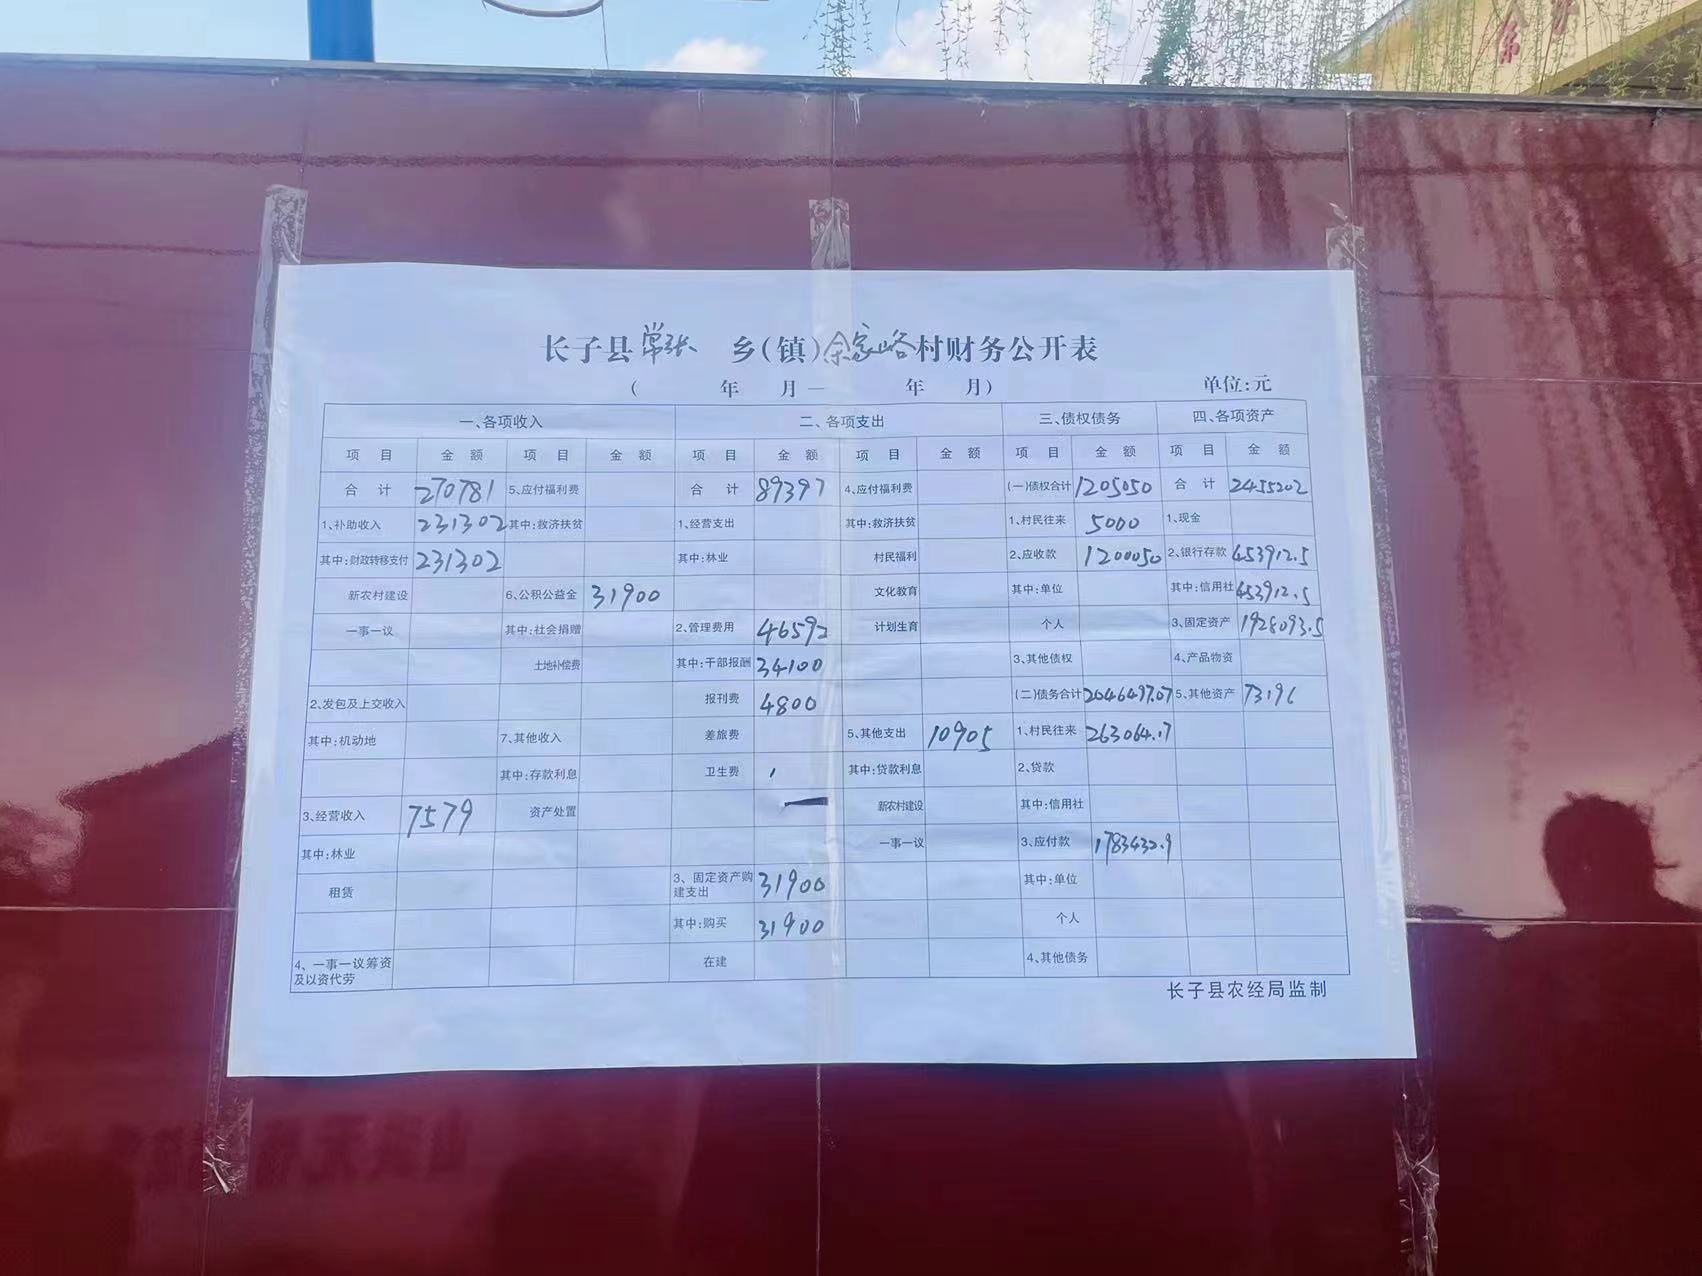 长子县常张 乡(镇)余家峪村财务公开表
( 年 月— 年 月) 单位:元
一、各项收入 二、各项支出 三、债权债务 四、各项资产
项 目 金 额 项 目 金 额 项 目 金 额 项 目 金 额 项 目 金 额 项 目 金 额
合 计 270781 5、应付福利费 合 计 89397 4、应付福利费 (一)债权合计 1205050 合 计 2455202
1、补助收入 231302 其中:救济扶贫 1、经营支出 其中:救济扶贫 1、村民往来 5000 1、现金
其中:财政转移支付 231302 其中:林业 村民福利 2、应收款 1200050 2、银行存款 453912.5
新农村建设 6、公积公益金 31900 文化教育 其中:单位 其中:信用社 453912.5
一事一议 其中:社会捐赠 2、管理费用 46592 计划生育 个人 3、固定资产 1928093.5
土地补偿费 其中:干部报酬 34100 3、其他债权 4、产品物资
2、发包及上交收入 报刊费 4800 (二)债务合计 2046497.07 5、其他资产 73196
其中:机动地 7、其他收入 差旅费 5、其他支出 10905 1、村民往来 263064.17
其中:存款利息 卫生费 其中:贷款利息 2、贷款
3、经营收入 7579 资产处置 新农村建设 其中:信用社
其中:林业 一事一议 3、应付款 1783432.9
租赁 3、固定资产购建支出 31900 其中:单位
其中:购买 31900 个人
4、一事一议筹资及以资代劳 在建 4、其他债务
长子县农经局监制